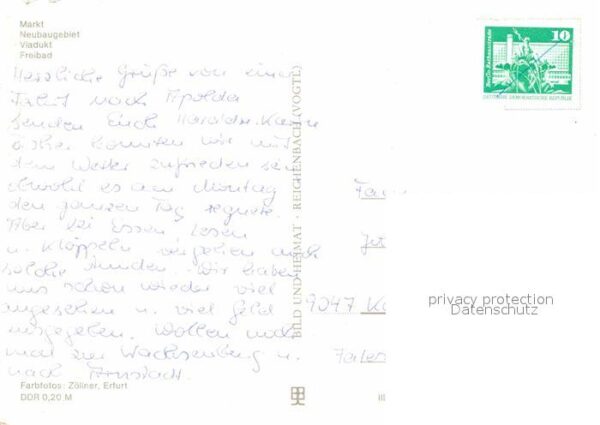 Markt
Neubaugebiet
Viadukt
Freibad
Herzliche Grüße von einer
Fahrt nach Apolda
senden Euch Harald u.
konnten wir mit
dem Wetter zufrieden sein
obwohl es am Montag
den ganzen Tag regnete.
Aber bei Essen, Lesen
u. Klöppeln vergehen auch
solche Stunden. Wir haben
uns schon wieder viel
angesehen u. viel Geld
ausgegeben. Wollen noch
mal zur Wachsenburg u.
nach Arnstadt.
Farbfotos: Zöllner, Erfurt
DDR 0,20 M
BILD UND HEIMAT · REICHENBACH (VOGTL)
10
DEUTSCHE DEMOKRATISCHE REPUBLIK
Fam
9047
privacy protection
Datenschutz